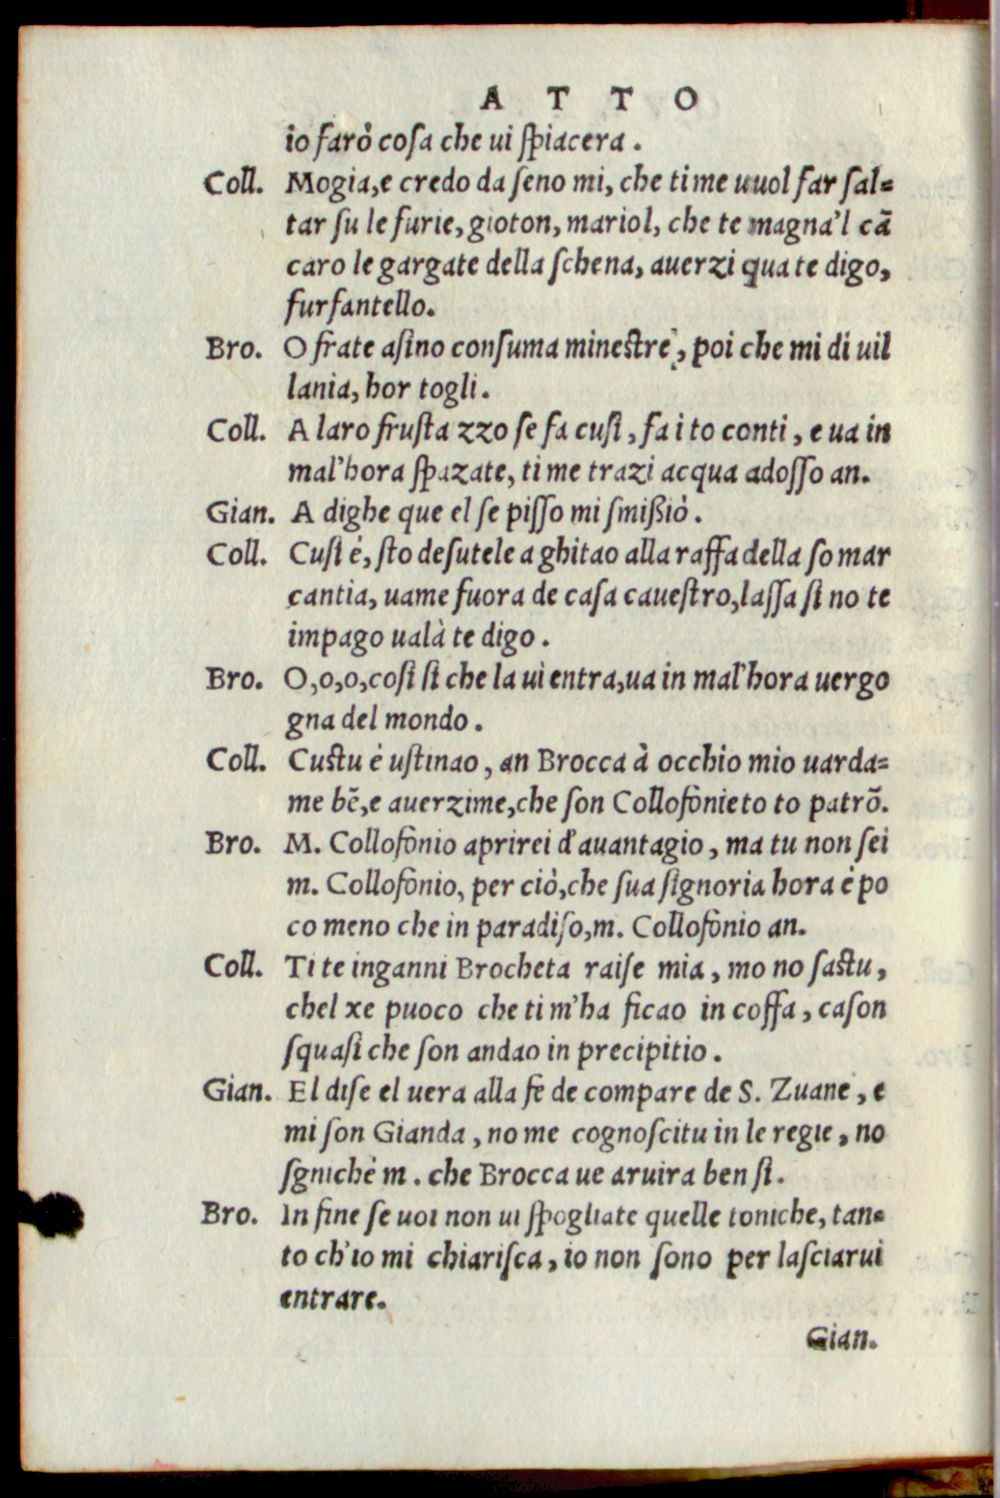 A T T O
io farò cosa che ui spiacera.
Coll. Mogia,e credo da seno mi, che ti me uuol far sal=
tar su le furie, gioton, mariol, che te magna'l cā
caro le gargate della schena, auerzi qua te digo,
furfantello.
Bro. O frate asino consuma minestre, poi che mi di uil
lania, hor togli.
Coll. A laro frusta zzo se fa cusi, fa i to conti, e ua in
mal'hora spazate, ti me trazi acqua adosso an.
Gian. A dighe que el se pisso mi smißiò.
Coll. Cusi è, sto desutele a ghitao alla raffa della so mar
cantia, uame fuora de casa cauestro,lassa si no te
impago ualà te digo.
Bro. O,o,o,cosi si che la ui entra,ua in mal'hora uergo
gna del mondo.
Coll. Custu è ustinao, an Brocca à occhio mio uarda=
me bē,e auerzime,che son Collofonieto to patrō.
Bro. M. Collofonio aprirei d'auantagio, ma tu non sei
m. Collofonio, per ciò,che sua signoria hora è po
co meno che in paradiso,m. Collofonio an.
Coll. Ti te inganni Brocheta raise mia, mo no sastu,
chel xe puoco che ti m'ha ficao in coffa, cason
squasi che son andao in precipitio.
Gian. El dise el uera alla fè de compare de S. Zuane, e
mi son Gianda, no me cognoscitu in le regie, no
sgnichè m. che Brocca ue aruira ben si.
Bro. In fine se uoi non ui spogliate quelle toniche, tan=
to ch'io mi chiarisca, io non sono per lasciarui
entrare.
Gian.